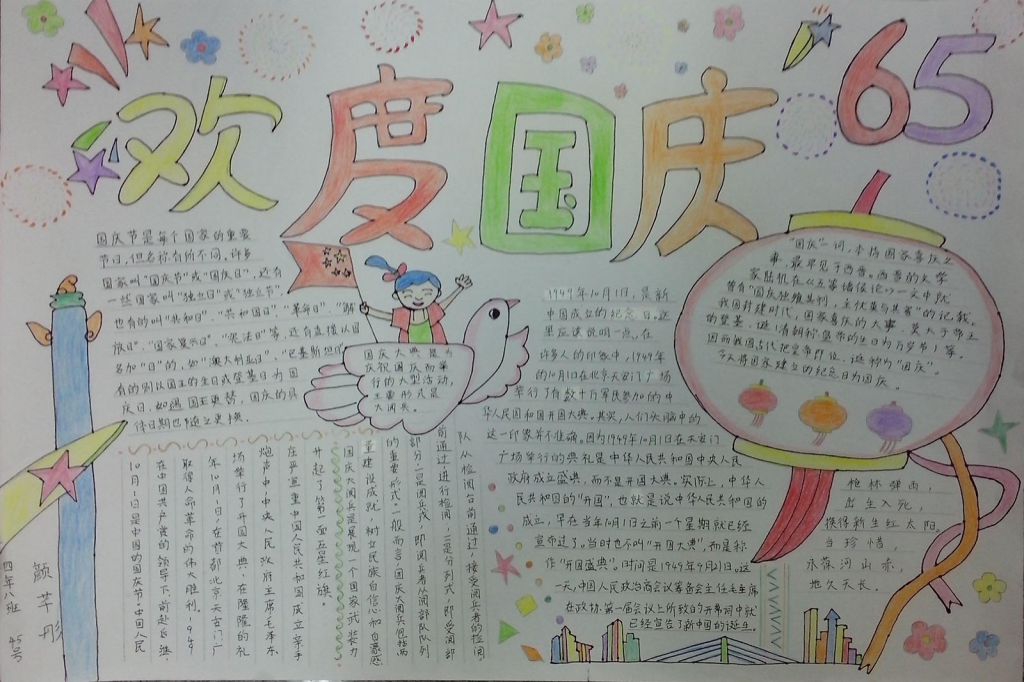 欢度国庆
65
国庆节是每个国家的重要
节日,但名称有所不同。许多
国家叫“国庆节”或“国庆日”,还有
一些国家叫“独立日”或“独立节”,
也有的叫“共和日”、“共和国日”、“革命日”、“解
放日”、“国家复兴日”、“宪法日”等,还有直接以国
名加“日”的,如“澳大利亚日”、“巴基斯坦日”
有的则以国王的生日或登基日为国
庆日,如遇国王更替,国庆的具
体日期也随之更换。
国庆大典是为
庆祝国庆而举
行的大型活动,
主要形式是
大阅兵。
1949年10月1日,是新
中国成立的纪念日。这
里应该说明一点,在
许多人的印象中,1949年
的10月1日在北京天安门广场
举行了有数十万军民参加的中
华人民共和国开国大典。其实,人们头脑中的
这一印象并不准确。因为1949年10月1日在天安门
广场举行的典礼是中华人民共和国中央人民
政府成立盛典,而不是开国大典。实际上,中华人
民共和国的“开国”,也就是说中华人民共和国的
成立,早在当年10月1日之前一个星期就已经
宣布过了。当时也不叫“开国大典”,而是称
作“开国盛典”。时间是1949年9月21日。这
一天,中国人民政治商会议筹备会主任毛主席
在政协第一届会议上所致的开幕词中就
已经宣告了新中国的诞生。
“国庆”一词,本指国家喜庆之
事,最早见于西晋。西晋的文学
家陆机在《五等诸侯论》一文中就
曾有“国庆独飨其利,主忧莫与其害”的记载。
我国封建时代,国家喜庆的大事,莫大于帝王
的登基、诞(清朝称皇帝的生日为万岁节)等。
因而我国古代把皇帝即位、诞称为“国庆”。
今天称国家建立的纪念日为国庆。
枪林弹雨,
出生入死,
换得新生红太阳。
当珍惜,
永葆河山赤,
地久天长。
队从检阅台前通过,接受阅兵者的检阅。
前通过进行检阅;二是分列式,即受阅部
部分:一是阅兵式,即阅兵者从阅部队队列
的重要形式。一般而言,国庆大阅兵包括两
重建设成就,树立民族自信心和自豪感
国庆大阅兵是展现一个国家武装力
升起了第一面五星红旗。
在严宣重中国人民共和国成立,亲手
炮声中,中央人民政府主席毛泽东
场举行了开国大典,在隆隆的礼
年10月1日,在首都北京天安门广
取得人命革命的伟大胜利。1949
在中国共产党的领导下,前赴后继,
10月1日是中国的国庆节。中国人民
四年八班
颜芊彤
45号